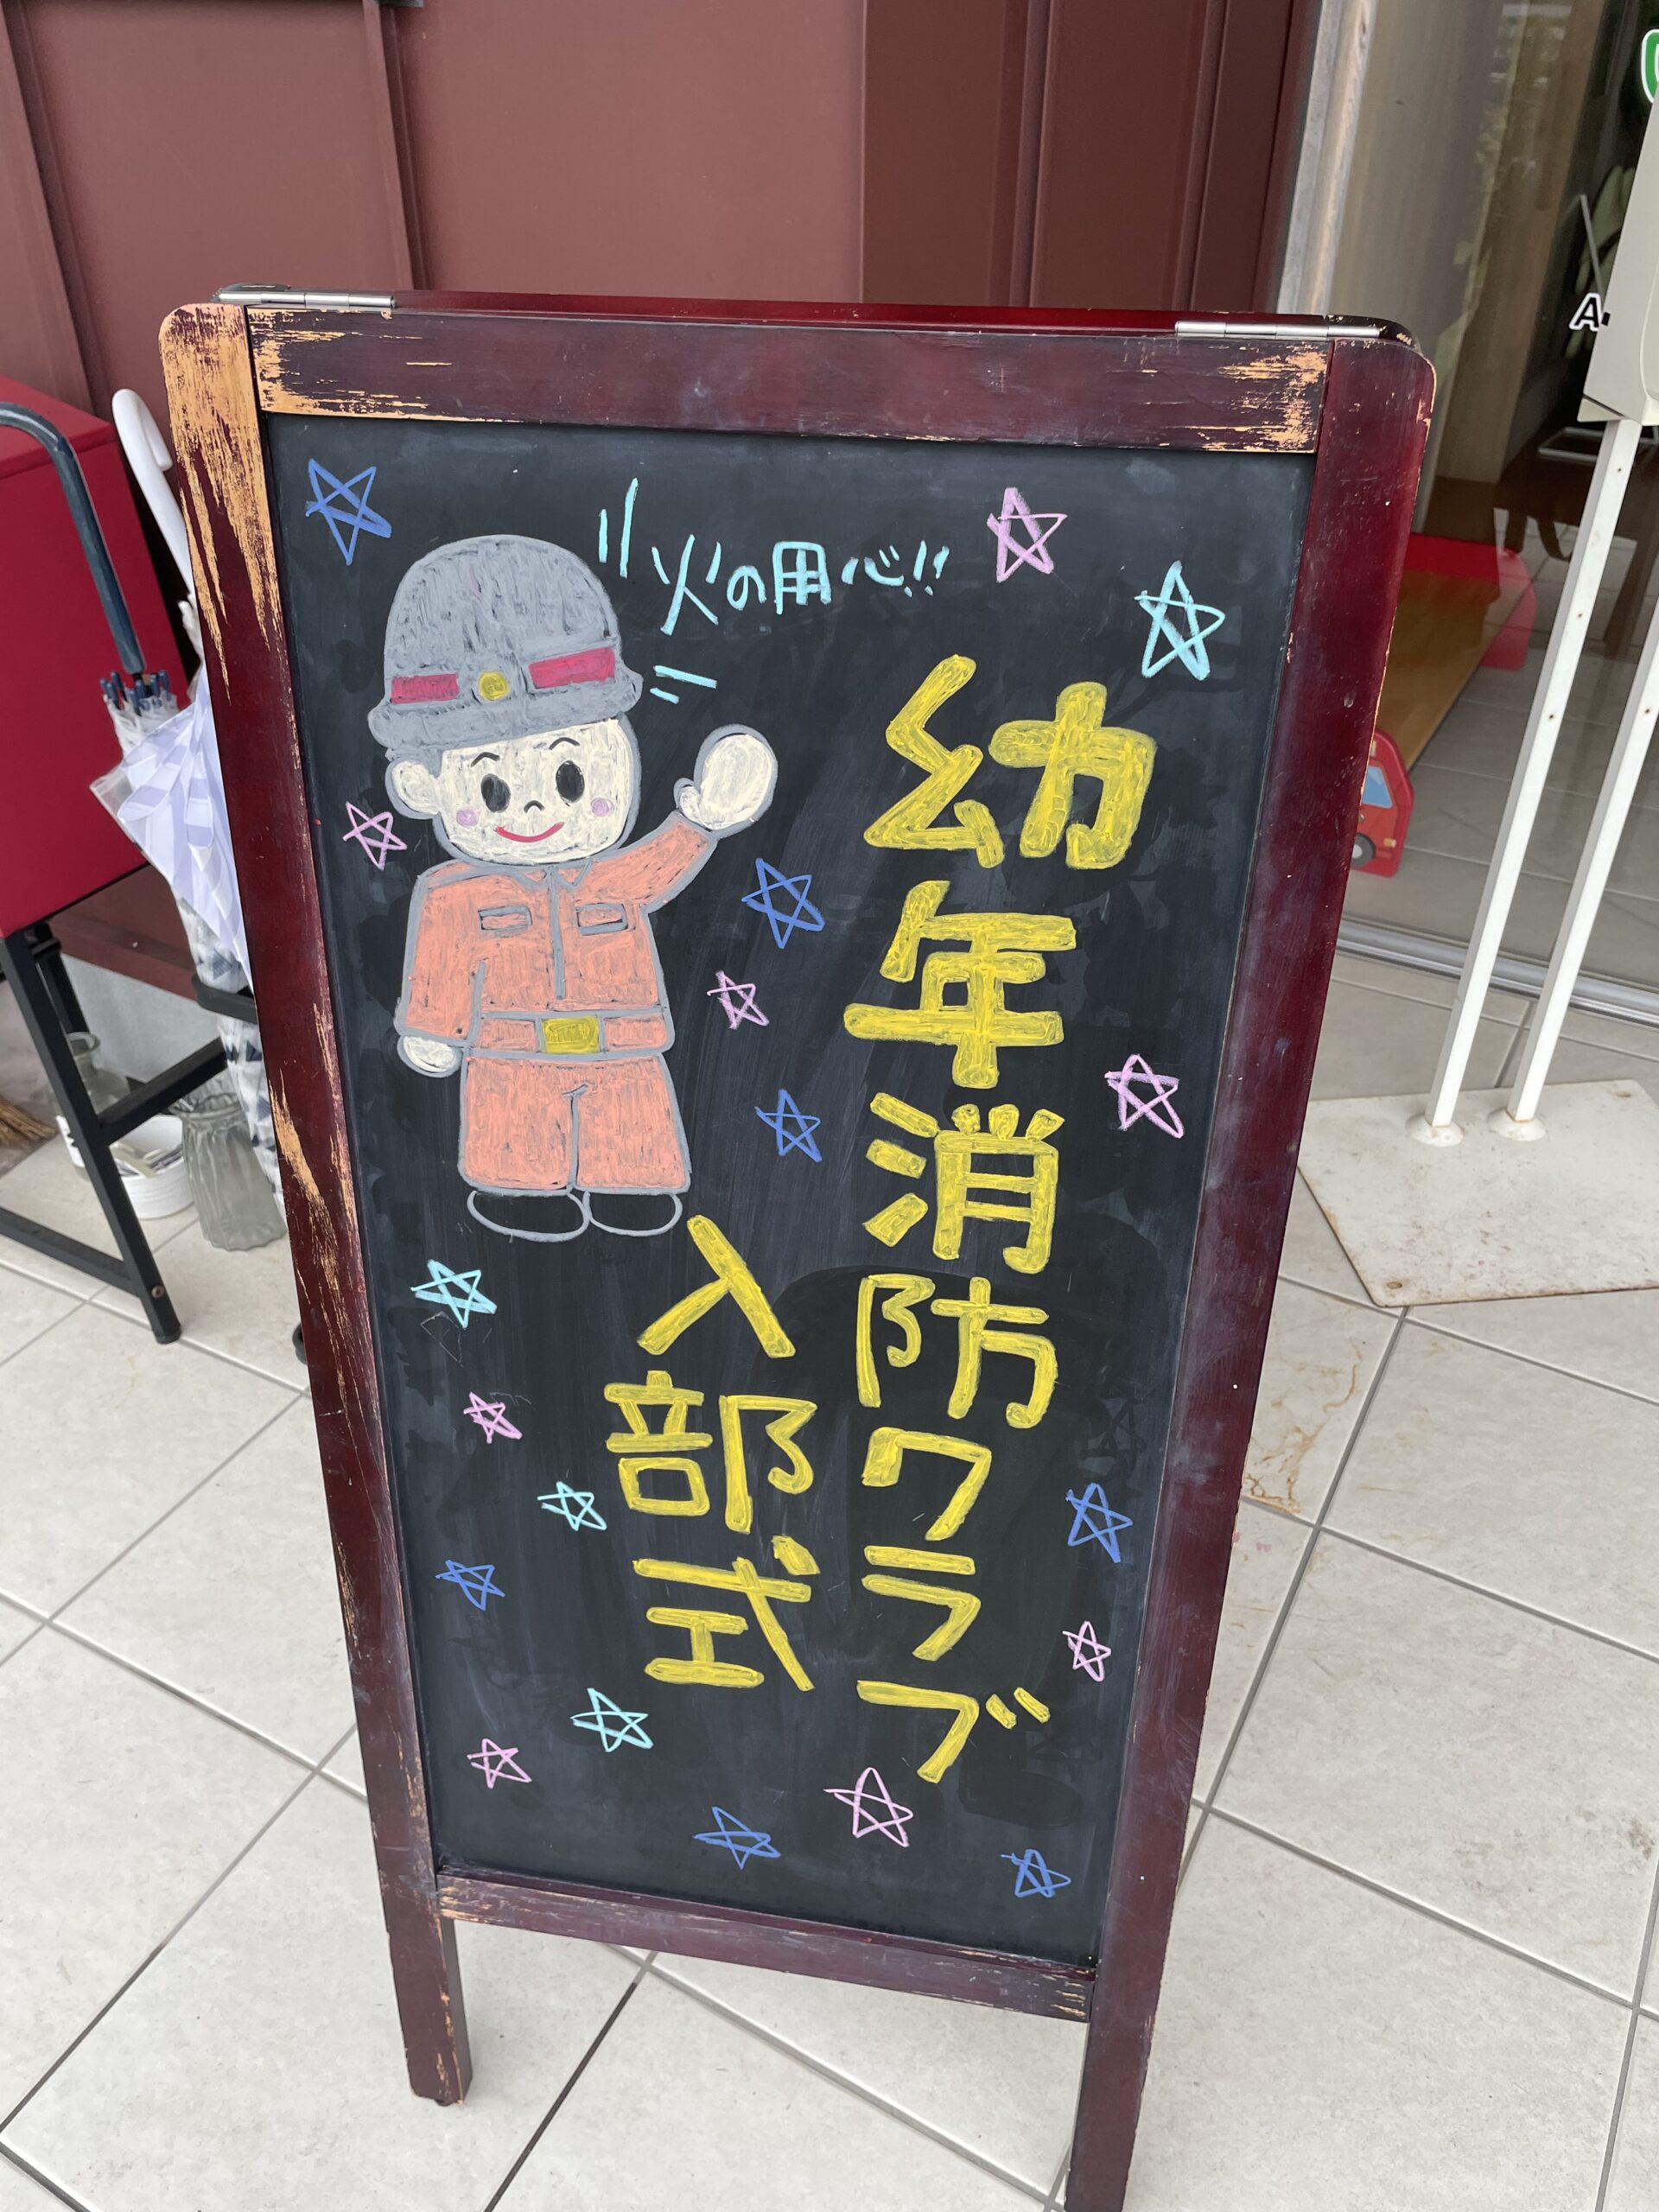 火の用心!!
幼年消防クラブ
入部式
A.